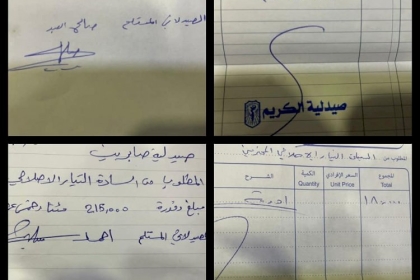 الصيدلاني المستلم صالح العبد
صيدلية الكريم
صيدلية صابرين
المطلوب من السادة التيار الاصلاحي
مبلغ وقدره 215,000
الصيدلاني المستلم احمد
المطلوب من السادة التيار الاصلاحي
المجموع
Total
السعر الإفرادي
Unit Price
الكمية
Quantity
الشرح
ادوية